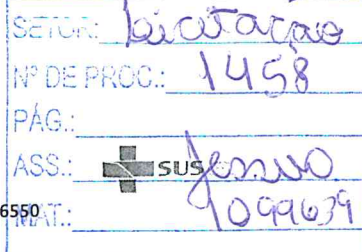 SETOR: Licitação
Nº DE PROC.: 1458
PÁG.:
ASS.: SUS
6550 MAT.: 1099639